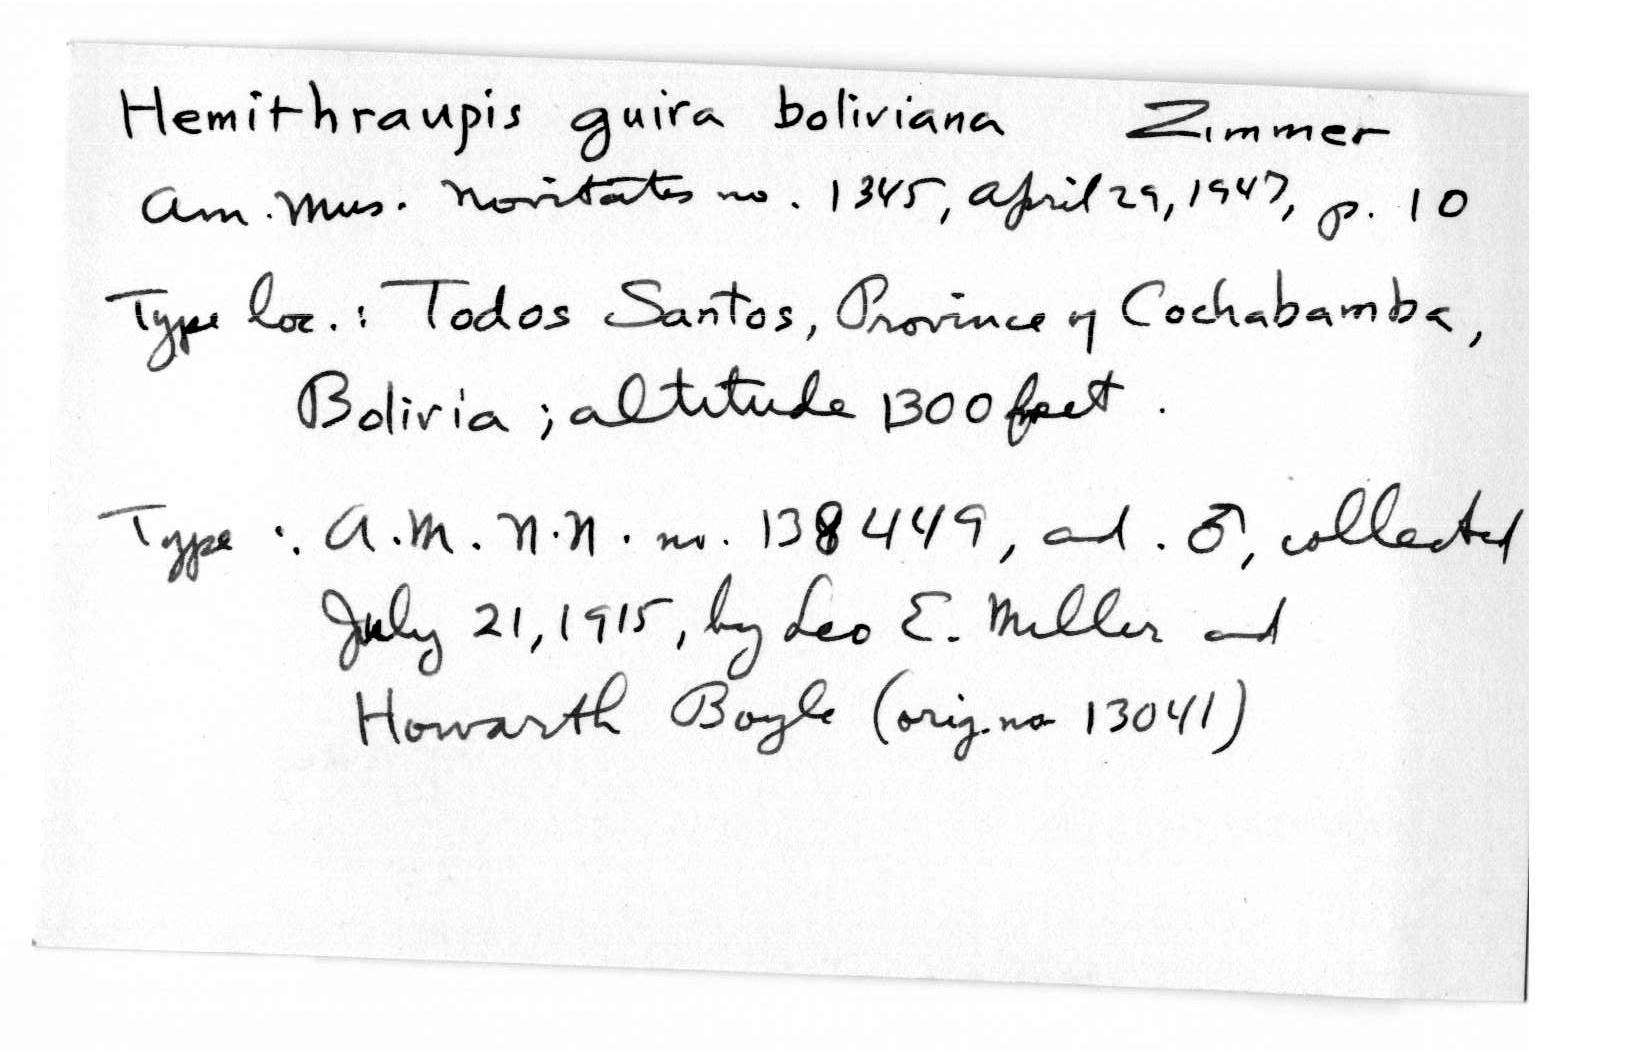 Hemithraupis guira boliviana Zimmer
Am. Mus. Novitates no. 1345, April 29, 1947, p. 10
Type loc.: Todos Santos, Province of Cochabamba,
Bolivia; altitude 1300 feet.
Type: A.M.N.H. no. 138449, ad. ♂, collected
July 21, 1915, by Leo E. Miller and
Howarth Boyle (orig. no 13041)